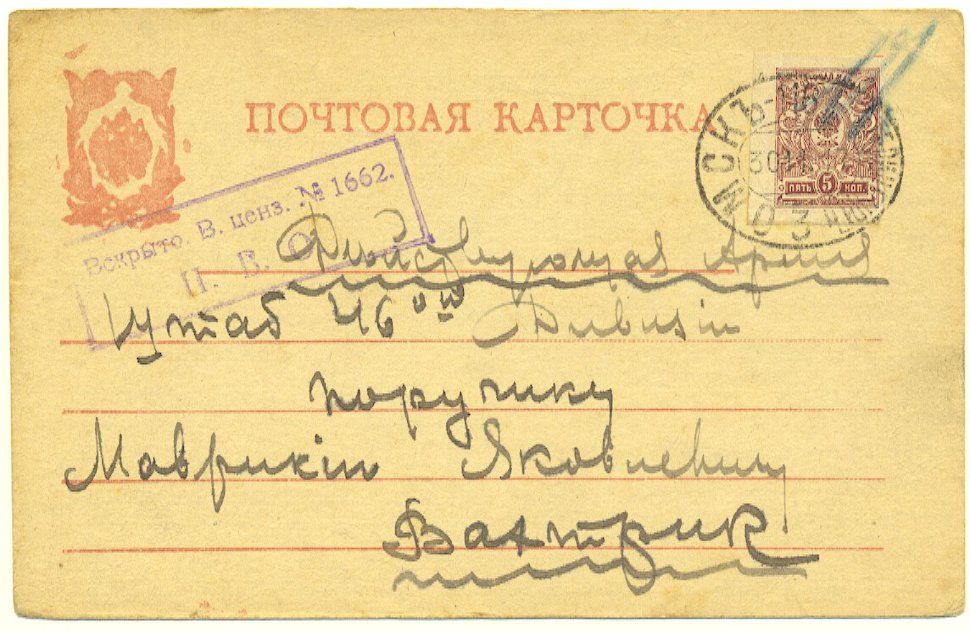 ПОЧТОВАЯ КАРТОЧКА
ПЯТЬ 5 КОП.
Вскрыто. В. ценз. № 1662.
П. В. О.
Действующая Армія
Штаб 46ой Дивизіи
поручику
Маврикію Яковлевичу
Вахтрик